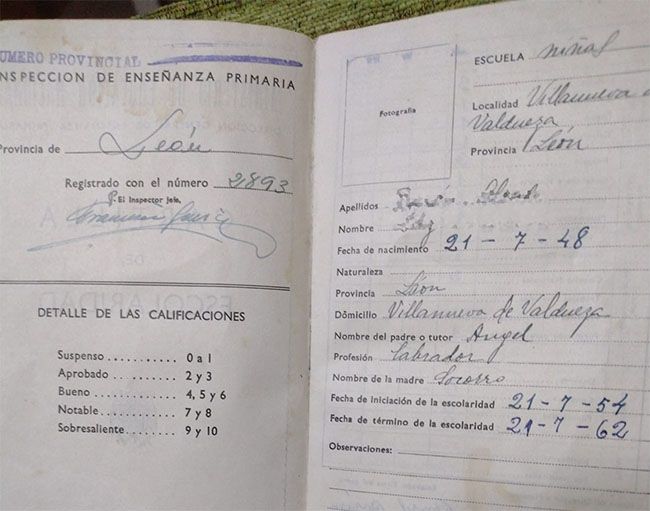 NUMERO PROVINCIAL
INSPECCION DE ENSEÑANZA PRIMARIA
Provincia de León
Registrado con el número 2893
P. El Inspector Jefe,
DETALLE DE LAS CALIFICACIONES
Suspenso .......... 0 a 1
Aprobado .......... 2 y 3
Bueno .......... 4, 5 y 6
Notable .......... 7 y 8
Sobresaliente .......... 9 y 10
Fotografía
ESCUELA niñas
Localidad Villanueva de
Valdueza
Provincia León
Apellidos
Nombre
Fecha de nacimiento 21 - 7 - 48
Naturaleza
Provincia León
Domicilio Villanueva de Valdueza
Nombre del padre o tutor Angel
Profesión Labrador
Nombre de la madre Socorro
Fecha de iniciación de la escolaridad 21 - 7 - 54
Fecha de término de la escolaridad 21 - 7 - 62
Observaciones: